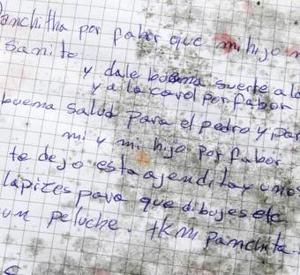 Panchitha por fabor que mi hijo n
Sanito
y dale buena suerte a la
y a la carol por fabor
buena salud para el pedro y par
mi y mi hijo por fabor
te dejo esta ajendita y unos
lapizes para que dibujes etc
un peluche. tkm panchita.